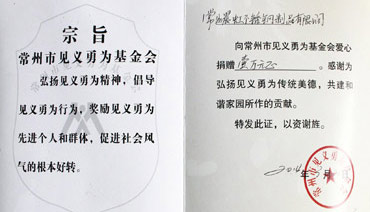 宗旨
常州市见义勇为基金会
弘扬见义勇为精神，倡导
见义勇为行为，奖励见义勇为
先进个人和群体，促进社会风
气的根本好转。
制品有限公司
向常州市见义勇为基金会爱心
捐赠 壹万元正 。感谢为
弘扬见义勇为传统美德，共建和
谐家园所作的贡献。
特发此证，以资谢旌。
2014年 月
常州市见义勇为